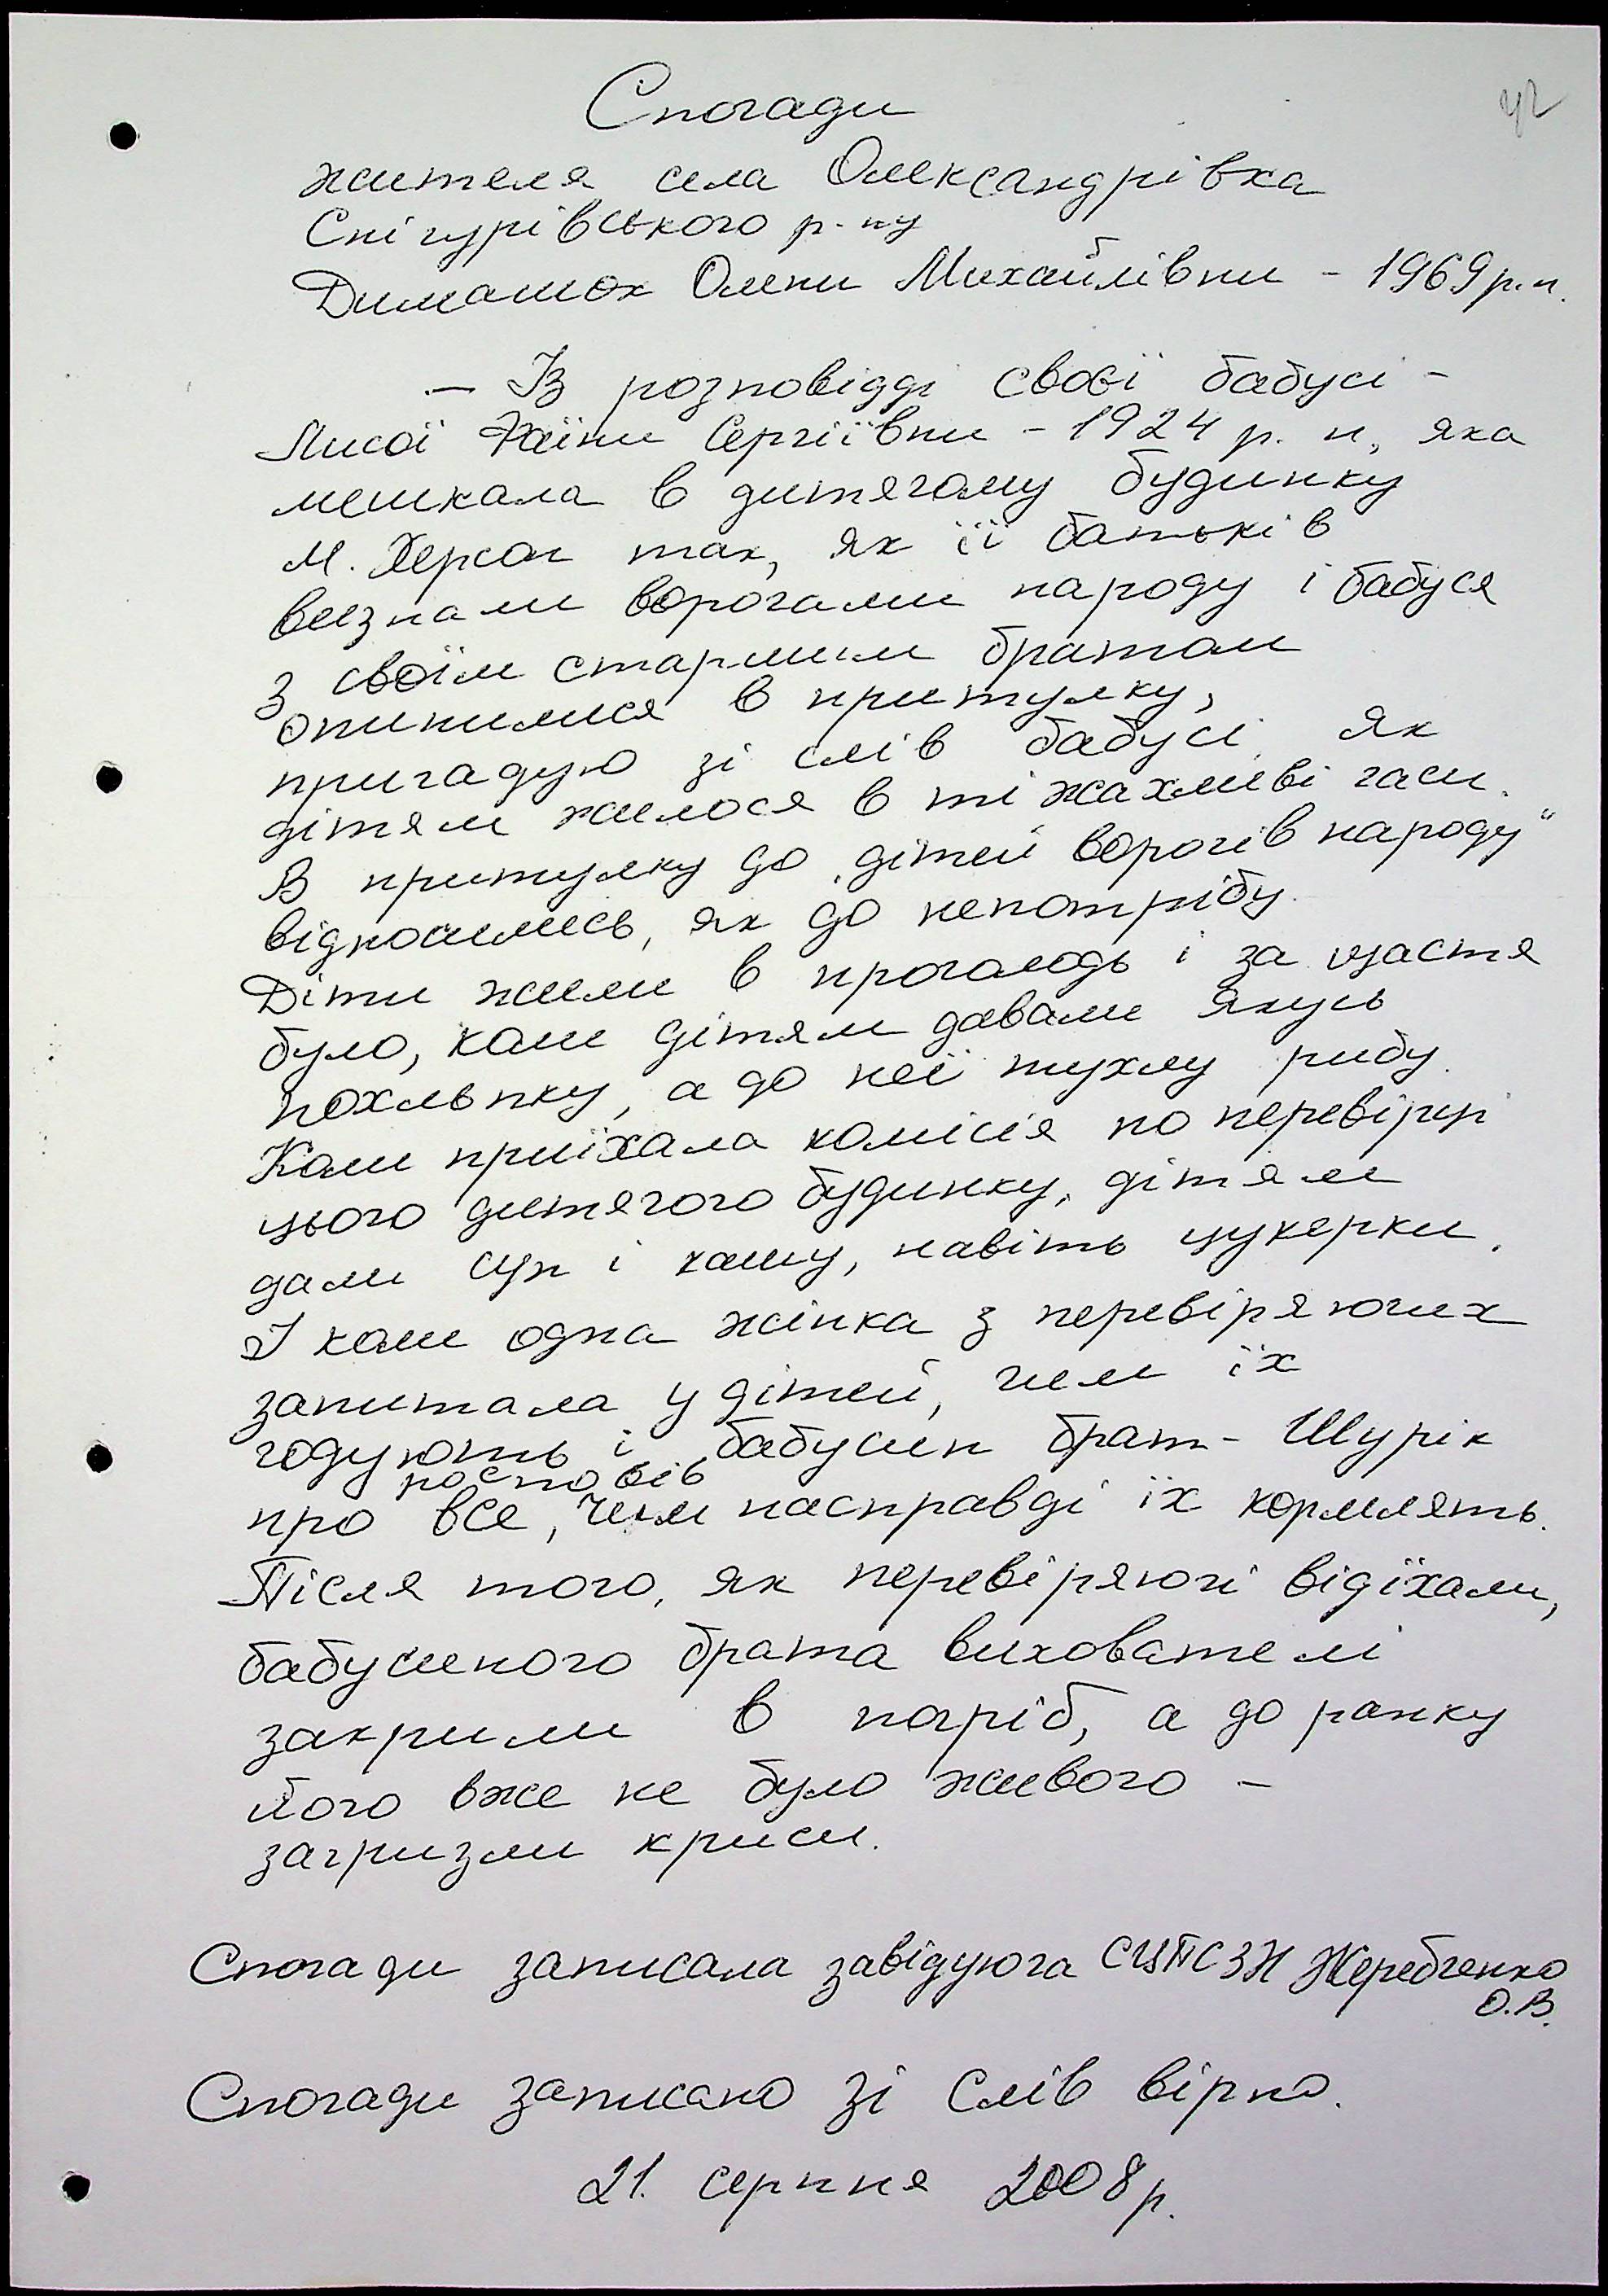 Спогади
жителя села Олександрівка
Снігурівського р-ну
Олени Михайлівни - 1969 р.н.
— Із розповідді своєї бабусі -
Лисої Раїни Сергіївни - 1924 р. н., яка
мешкала в дитячому будинку
м. Херсон так, як її батьків
визнали ворогами народу і бабуся
з своїм старшим братом
опинилися в притулку,
пригадую зі слів бабусі, як
дітям жилося в ті жахливі часи.
В притулку до „дітей ворогів народу"
відносились, як до непотрібу.
Діти жили в проголодь і за щастя
було, коли дітям давали якусь
похльпку, а до неї тухлу рибу.
Коли приїхала комісія по перевірці
цього дитячого будинку, дітям
дали суп і кашу, навіть цукерки.
І коли одна жінка з перевіряючих
запитала у дітей, чим їх
годують і бабусин брат - Шурік
росповів
про все, чим насправді їх кормлять.
Після того, як перевіряючі відїхали,
бабусиного брата вихователі
закрили в погріб, а до ранку
його вже не було живого -
загризли криси.
Спогади записала завідуюча СЦПСЗН Жеребченко
О.В.
Спогади записано зі слів вірно.
21. серпня 2008 р.